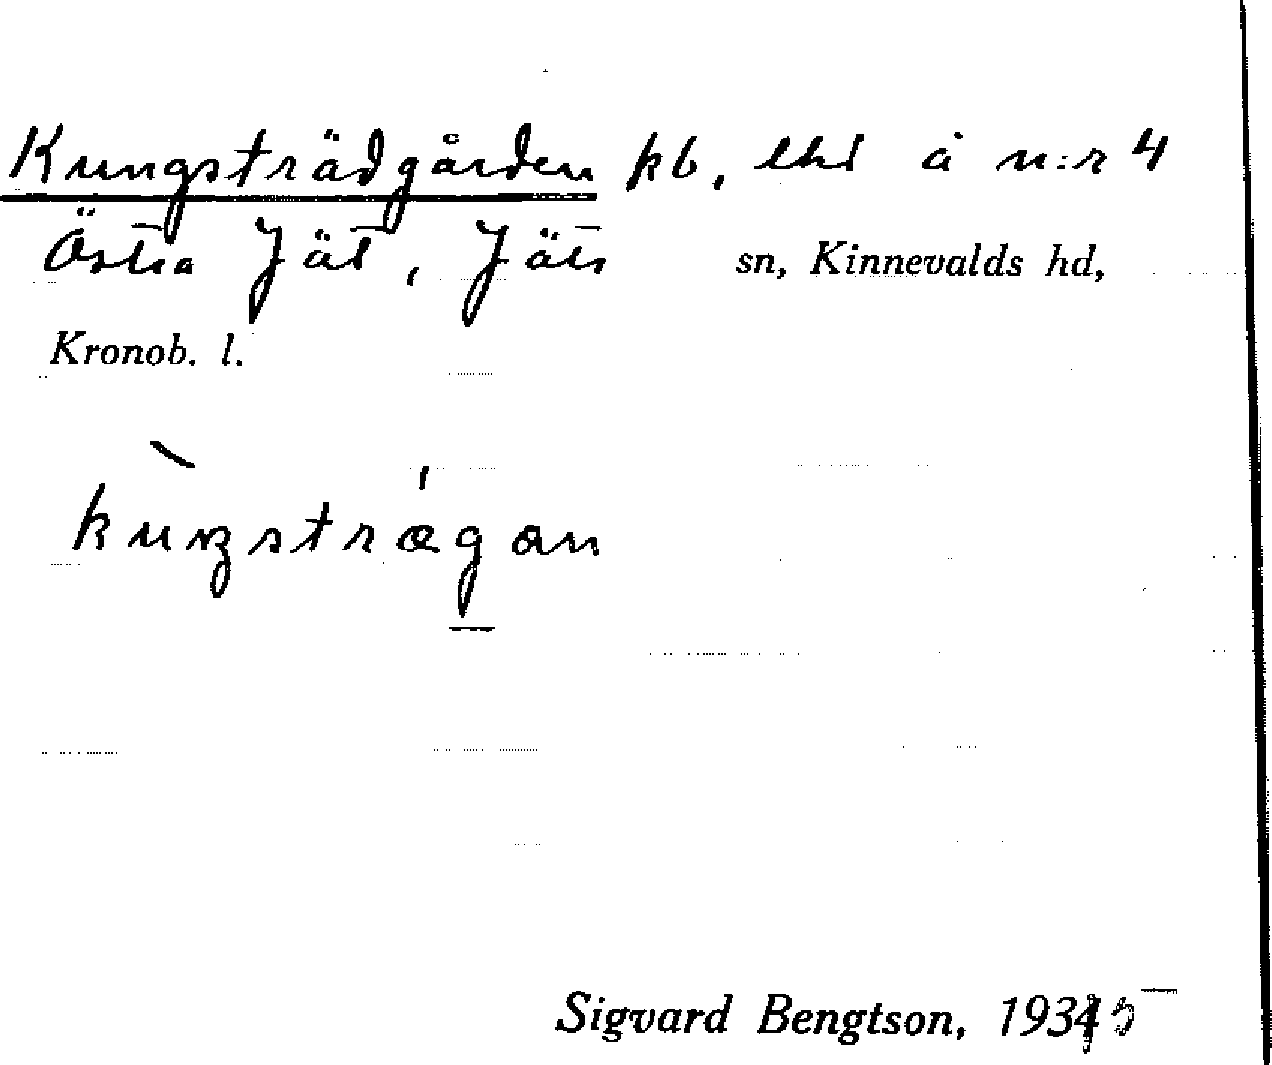 Kungsträdgården kb, lht å n:r 4
Östra Jät, Jäts sn, Kinnevalds hd,
Kronob. l.
kuŋstrægan
Sigvard Bengtson, 1935